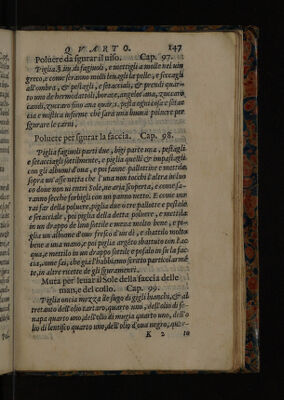 QVARTO. 147
Poluere da sgurar il uiso. Cap. 97.
Piglia di fagiuoli, e mettigli a molle nel uin
greco, e come seranno molli leuagli la pelle, e seccagli
all'ombra, & pestagli, e setacciali, & prendi quar-
to uno de hermodattoli, borace, angelicana, zuccaro
candi, zuccaro fino ana quar. i. pesta ogni cosa e setac
cia e mistica insieme che sarà una buona poluere per
sgurare le carni.
Poluere per sgurar la faccia. Cap. 98.
Piglia fagiuoli parti due, bigi parte una, pestagli
e setacciagli sottilmente, e piglia quelli & impastagli
con gli albumi d'oua, e poi fanne pallottine e mettile
sopra un'asse netta che l'una non tocchi l'altra in luo
co doue non ui entri Sole, ne aria scoperta, e come sa-
ranno secche furbigli con un panno netto. E come uor
rai far della poluere, piglia due o tre pallotte e pestale
e setacciale, poi piglia della detta poluere, e mettila
in un drappo de lino sottile e mena molto bene, e pi-
glia un albume d'ouo fresco d'un dì, e sbattilo molto
bene a una mano, e poi piglia argēto sbattuto con l'ac
qua, e mettilo in un drappo sottile e posalo in su la fac-
cia, come sai, che già t'habbiamo scritto particularmē
te, in altre ricette de gli sguramenti.
Muta per leuar il Sole della faccia delle
man, e del collo. Cap. 99.
Piglia oncia mezza de sugo di gigli bianchi, & al
tretanto dell'olio tartaro, quarto uno, dell'olio di se-
napa quarto uno, dell'olio di mugia quarto uno, dell'o
lio di lentisco quarto uno, dell'olio d'oua negro, quar-
K 2 to